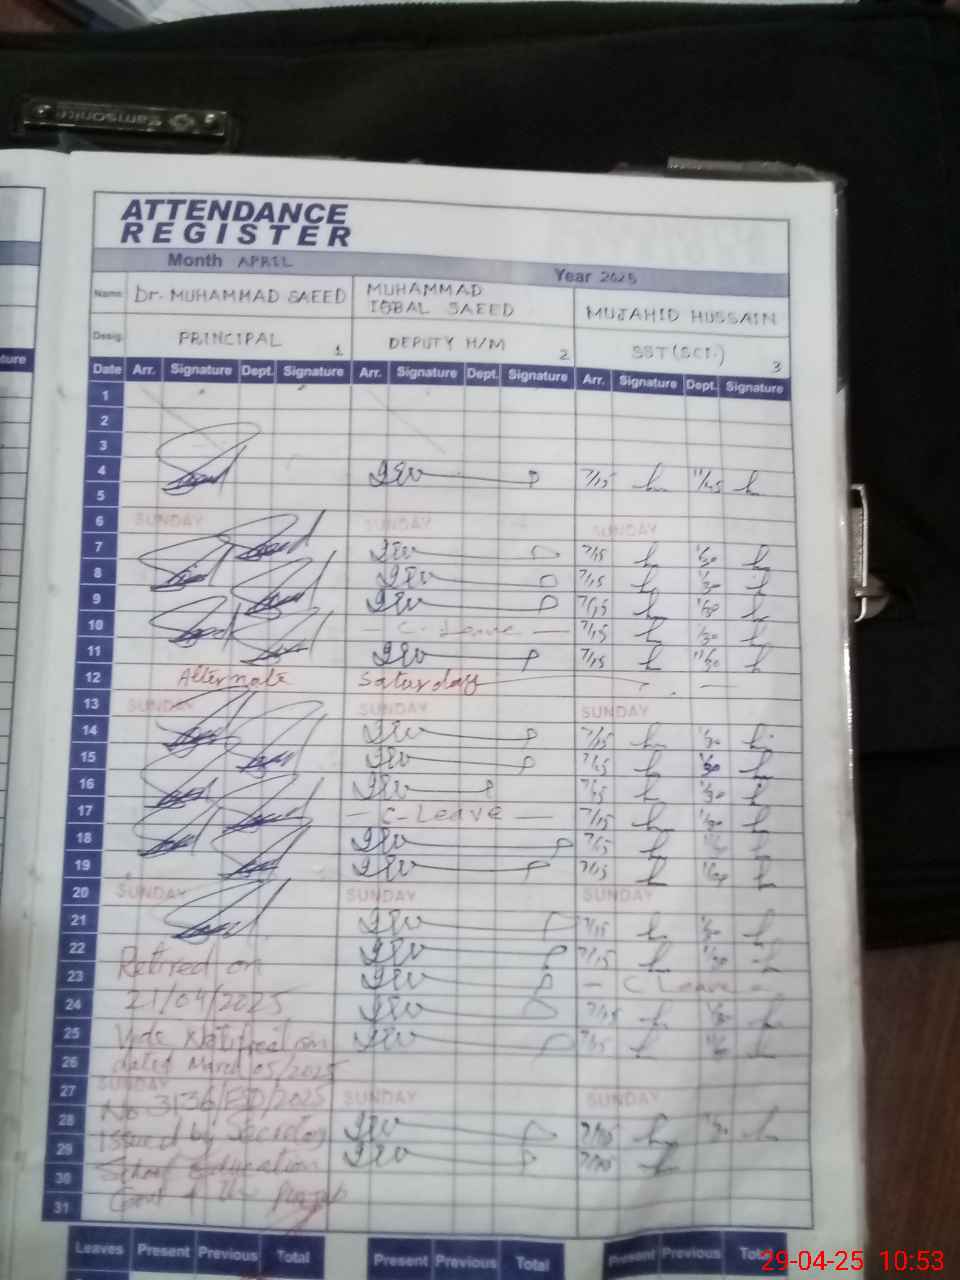 Samsonite
ATTENDANCE
REGISTER
Month APRIL Year 2025
Name Dr. MUHAMMAD SAEED MUHAMMAD IQBAL SAEED MUJAHID HUSSAIN
Desig. PRINCIPAL 1 DEPUTY H/M 2 SST (SCI.) 3
ture
Date Arr. Signature Dept. Signature Arr. Signature Dept. Signature Arr. Signature Dept. Signature
1
2
3
4 7/15 11/45
5
6 SUNDAY SUNDAY SUNDAY
7 7/15 1/30
8 7/15 1/30
9 7/15 1/30
10 - C - Leave - 7/15 1/30
11 7/15 11/30
12 Alternate Saturday
13 SUNDAY SUNDAY SUNDAY
14 7/15 1/30
15 7/15 1/30
16 7/15 1/30
17 - C - Leave - 7/15 1/30
18 7/15
19 7/15
20 SUNDAY SUNDAY SUNDAY
21 7/15 1/30
22 7/15 1/30
23 Retired on - C Leave -
24 21/04/2025 7/15 1/30
25 Vide Notification 7/15
26 dated March 05/2025
27 SUNDAY SUNDAY SUNDAY
28 No 3136/ /2025
29 Issued by Secretary
30 School Education
31 Govt of the Punjab
Leaves Present Previous Total Present Previous Total Present Previous Total
29-04-25 10:53